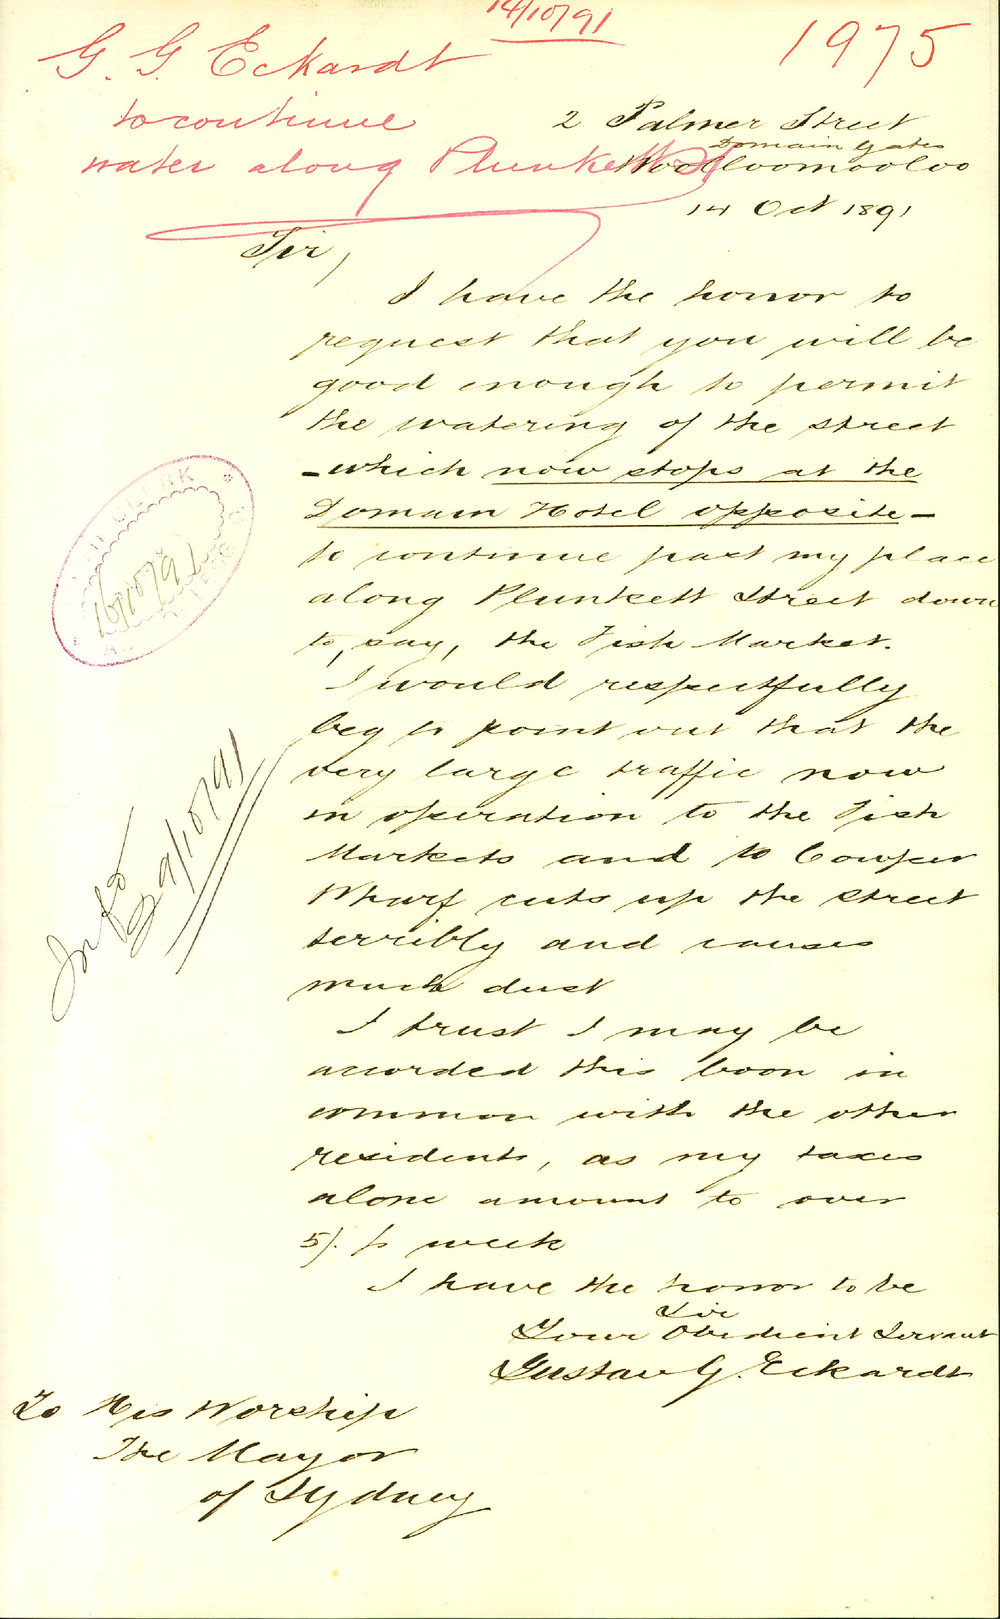 14/10/91
1975
G. G. Eckardt
to continue
water along Plunkett St
2 Palmer Street
Domain Gates
Woolloomooloo
14 Oct 1891
Sir,
I have the honor to
request that you will be
good enough to permit
the watering of the street
– which now stops at the
Domain Hotel opposite –
to continue past my place
along Plunkett Street down
to, say, the Fish Market.
I would respectfully
beg to point out that the
very large traffic now
in operation to the Fish
Markets and to Cowper
Wharf cuts up the street
terribly and causes
much dust
I trust I may be
accorded this boon in
common with the other
residents, as my taxes
alone amount to over
5/. p week
I have the honor to be
Sir
Your Obedient Servant
Gustav G. Eckardt
To His Worship
The Mayor
of Sydney
CLERK
16/10/91
29/10/91